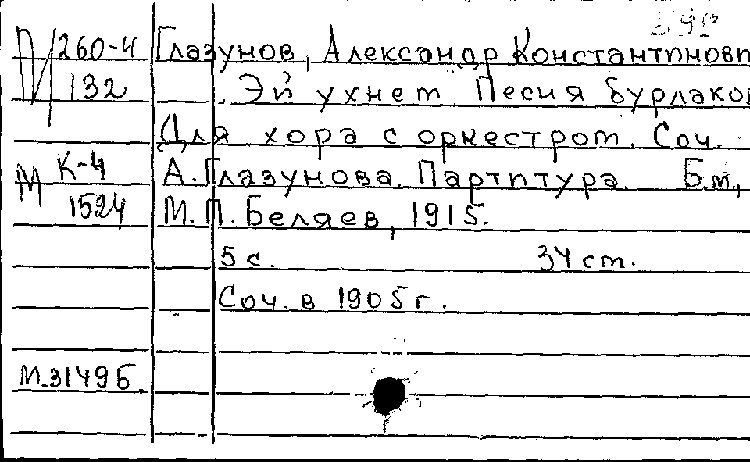 260-4 Глазунов, Александр Константинович
132 Эй ухнем Песня бурлаков
Для хора с оркестром. Соч.
М К-4 А. Глазунова. Партитура. Б.м,
1524 М. П. Беляев, 1915.
5 с. 34 ст.
Соч. в 1905 г.
М.31496